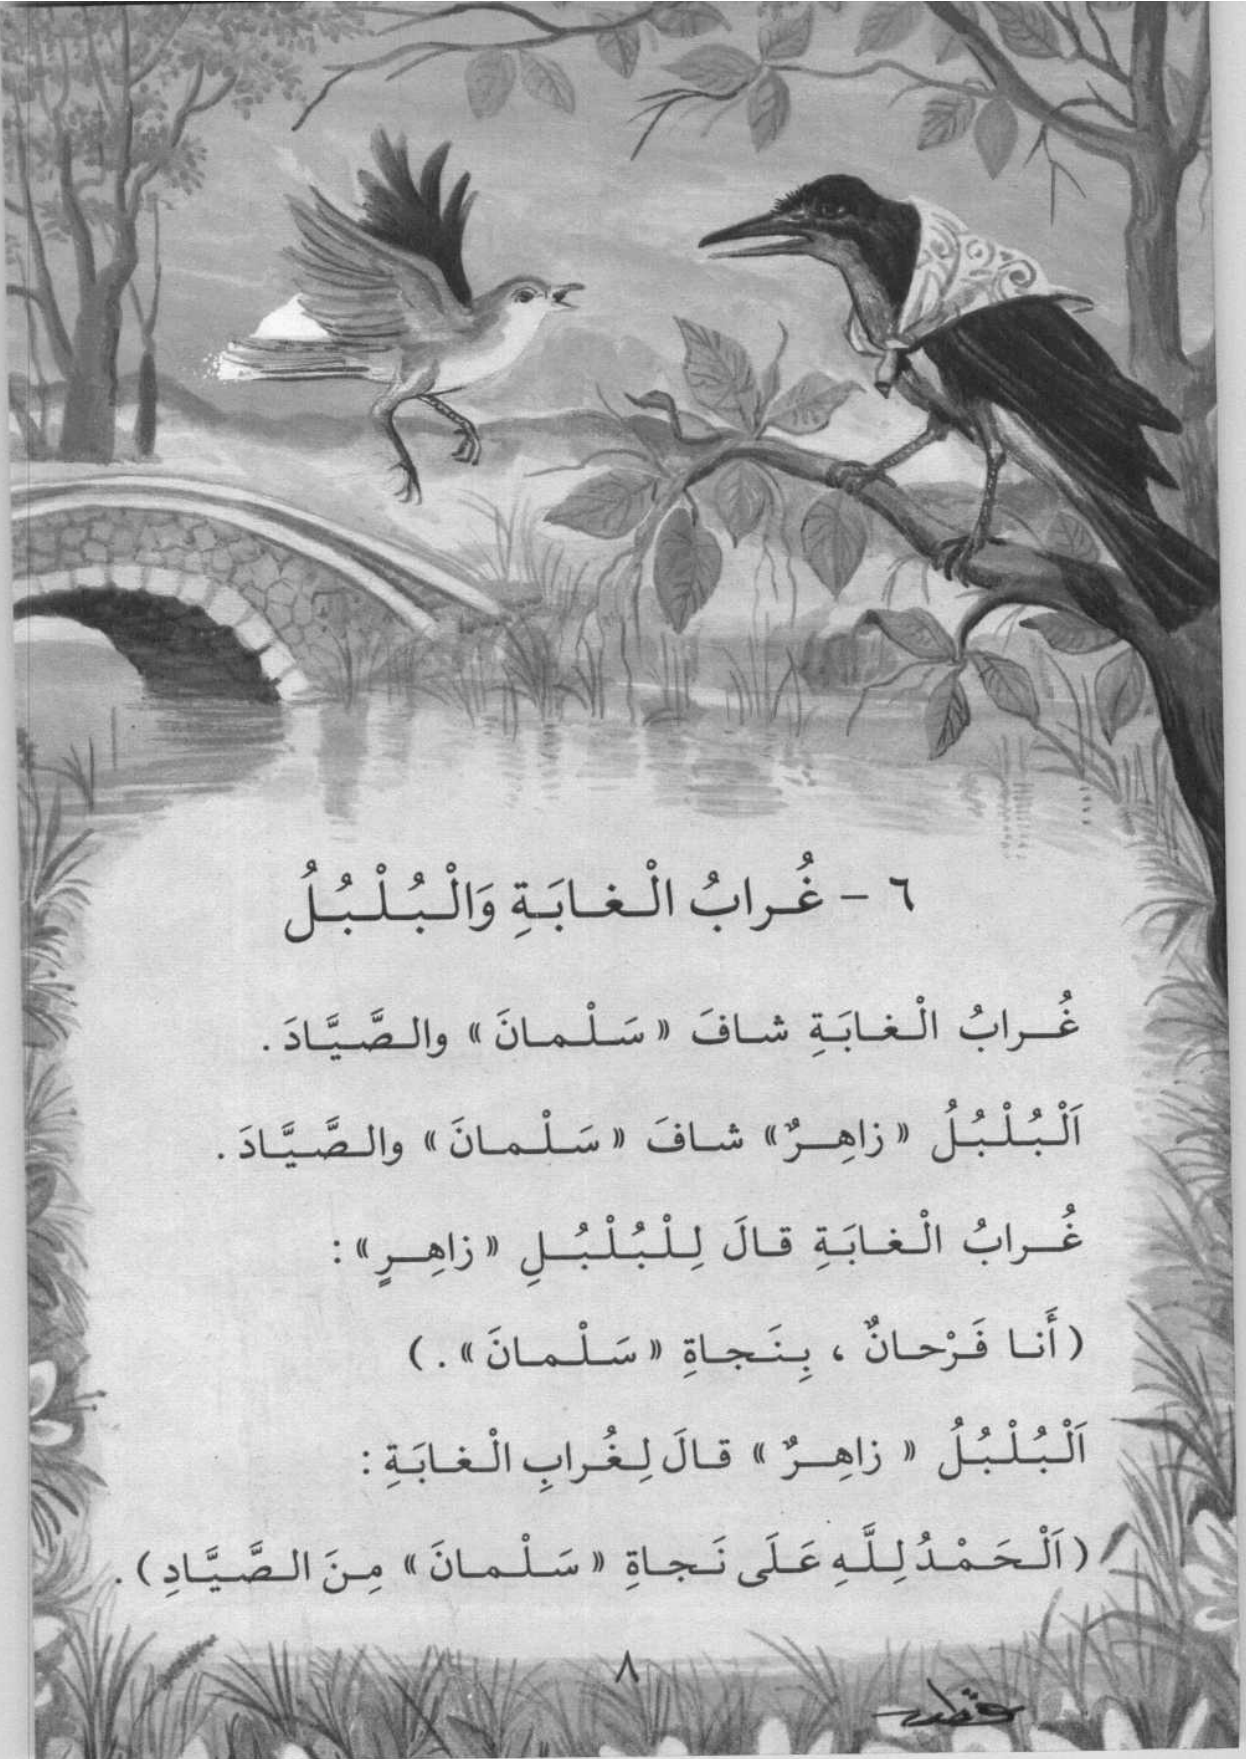 ٦ - غُرابُ الْغابَةِ وَالْبُلْبُلُ
غُرابُ الْغابَةِ شافَ « سَلْمانَ » والصَّيَّادَ .
اَلْبُلْبُلُ « زاهِرٌ » شافَ « سَلْمانَ » والصَّيَّادَ .
غُرابُ الْغابَةِ قالَ لِلْبُلْبُلِ « زاهِرٍ » :
( أَنا فَرْحانٌ ، بِنَجاةِ « سَلْمانَ » . )
اَلْبُلْبُلُ « زاهِرٌ » قالَ لِغُرابِ الْغابَةِ :
( اَلْحَمْدُ لِلَّهِ عَلَى نَجاةِ « سَلْمانَ » مِنَ الصَّيَّادِ ) .
٨